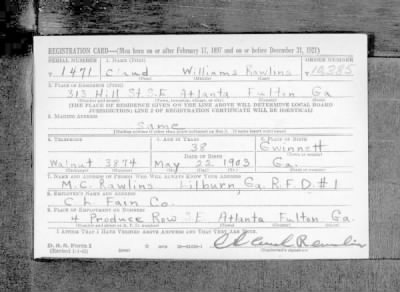 REGISTRATION CARD—(Men born on or after February 17, 1897 and on or before December 31, 1921)
SERIAL NUMBER 1. NAME (Print) ORDER NUMBER
T 1471 Claud Williams Rawlins T 10385
(First) (Middle) (Last)
2. PLACE OF RESIDENCE (Print)
313 Hill St. S.E. Atlanta Fulton Ga
(Number and street) (Town, township, village, or city) (County) (State)
[THE PLACE OF RESIDENCE GIVEN ON THE LINE ABOVE WILL DETERMINE LOCAL BOARD
JURISDICTION; LINE 2 OF REGISTRATION CERTIFICATE WILL BE IDENTICAL]
3. MAILING ADDRESS
Same
[Mailing address if other than place indicated on line 2. If same insert word same]
4. TELEPHONE 5. AGE IN YEARS 6. PLACE OF BIRTH
38 Gwinnett
DATE OF BIRTH (Town or county)
Walnut 3874 May 22 1903 Ga.
7. NAME AND ADDRESS OF PERSON WHO WILL ALWAYS KNOW YOUR ADDRESS
M.C. Rawlins Lilburn, Ga. R.F.D. #1
8. EMPLOYER'S NAME AND ADDRESS
C.L. Fain Co.
9. PLACE OF EMPLOYMENT OR BUSINESS
4 Produce Row S.E. Atlanta Fulton Ga.
(Number and street or R. F. D. number) (Town) (County) (State)
I AFFIRM THAT I HAVE VERIFIED ABOVE ANSWERS AND THAT THEY ARE TRUE.
D. S. S. Form 1
(Revised 1-1-42) (over)
(Registrant's signature)